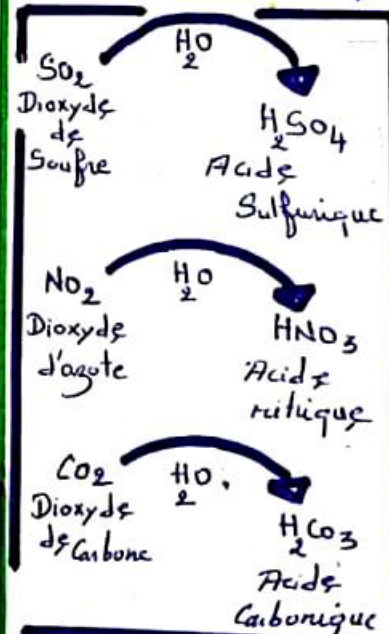 H₂O
SO₂
Dioxyde
de
Soufre
H₂SO₄
Acide
Sulfurique
H₂O
NO₂
Dioxyde
d'azote
HNO₃
Acide
nitrique
H₂O.
CO₂
Dioxyde
de Carbone
H₂Co₃
Acide
Carbonique